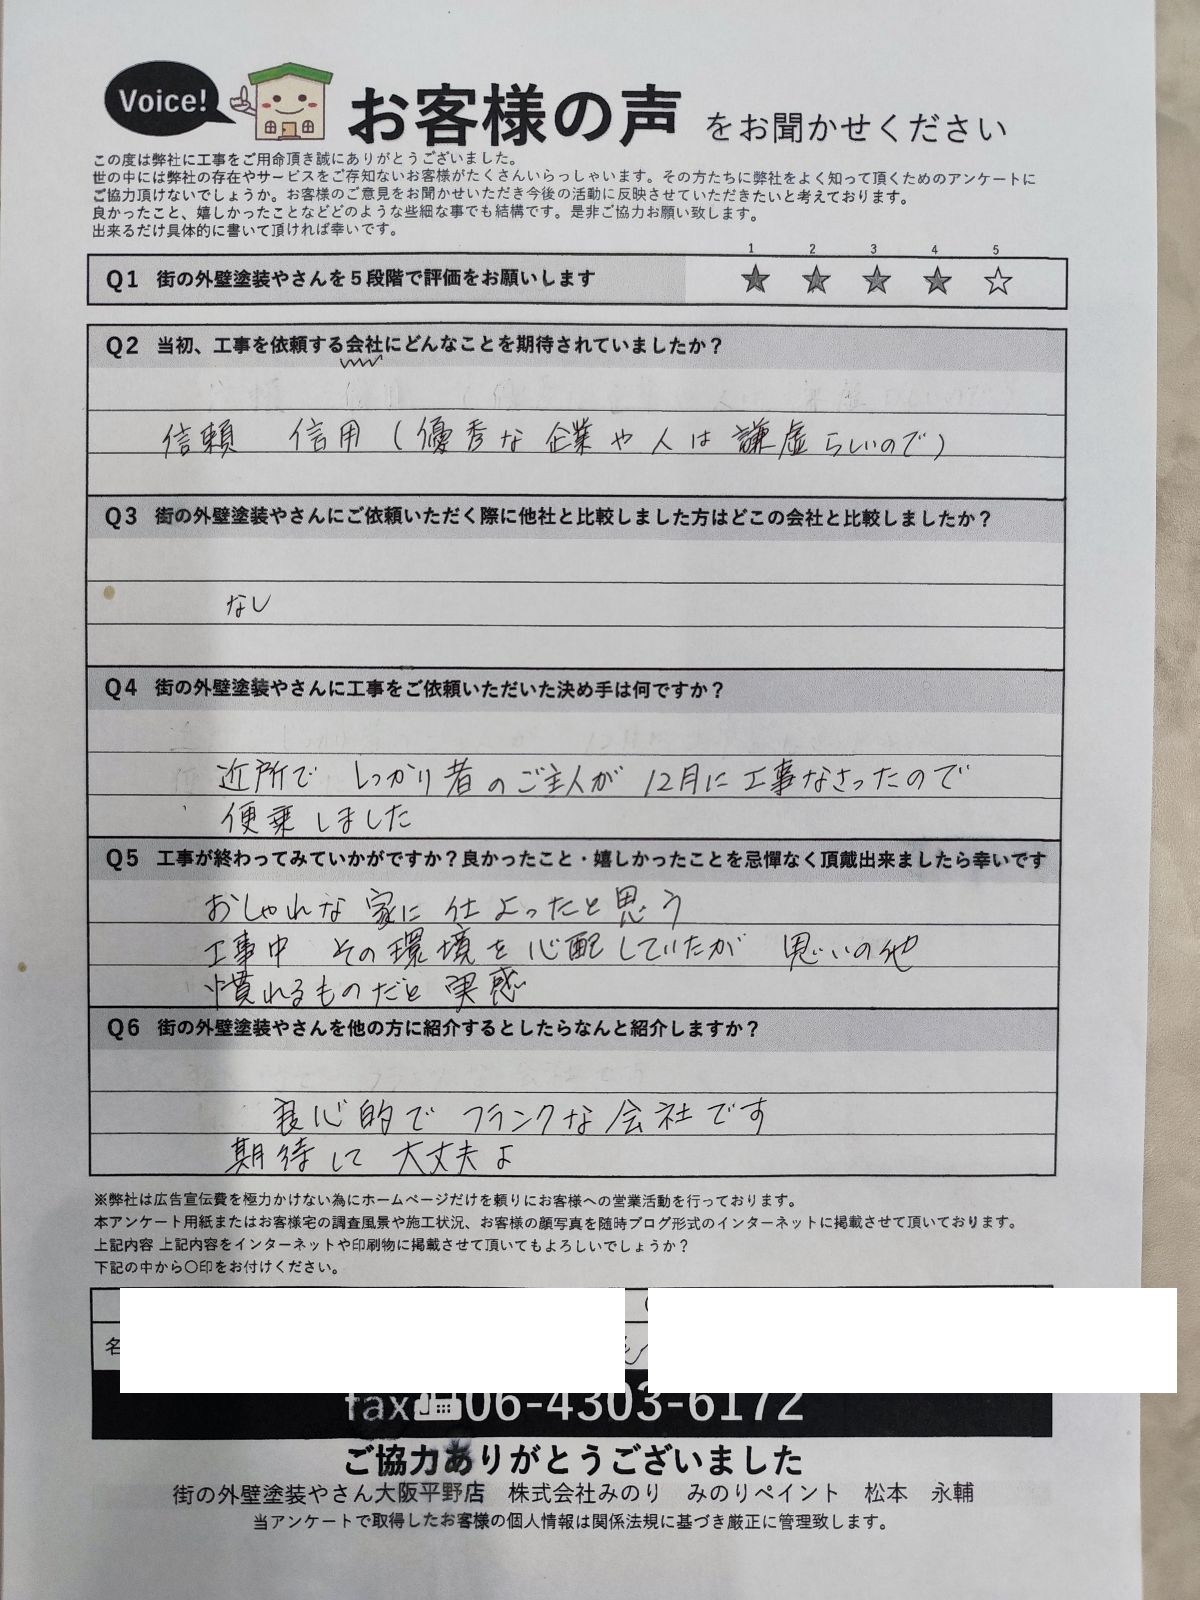 Voice!
お客様の声 をお聞かせください
この度は弊社に工事をご用命頂き誠にありがとうございました。
世の中には弊社の存在やサービスをご存知ないお客様がたくさんいらっしゃいます。その方たちに弊社をよく知って頂くためのアンケートに
ご協力頂けないでしょうか。お客様のご意見をお聞かせいただき今後の活動に反映させていただきたいと考えております。
良かったこと、嬉しかったことなどどのような些細な事でも結構です。是非ご協力お願い致します。
出来るだけ具体的に書いて頂ければ幸いです。
1 2 3 4 5
Q1 街の外壁塗装やさんを5段階で評価をお願いします ★ ★ ★ ★ ☆
Q2 当初、工事を依頼する会社にどんなことを期待されていましたか？
信頼 信用（優秀な企業や人は謙虚らしいので）
Q3 街の外壁塗装やさんにご依頼いただく際に他社と比較しました方はどこの会社と比較しましたか？
なし
Q4 街の外壁塗装やさんに工事をご依頼いただいた決め手は何ですか？
近所で しっかり者のご主人が 12月に工事なさったので
便乗しました
Q5 工事が終わってみていかがですか？良かったこと・嬉しかったことを忌憚なく頂戴出来ましたら幸いです
おしゃれな家に仕よったと思う
工事中 その環境を心配していたが 思いの他
慣れるものだと実感
Q6 街の外壁塗装やさんを他の方に紹介するとしたらなんと紹介しますか？
良心的でフランクな会社です
期待して大丈夫よ
※弊社は広告宣伝費を極力かけない為にホームページだけを頼りにお客様への営業活動を行っております。
本アンケート用紙またはお客様宅の調査風景や施工状況、お客様の顔写真を随時ブログ形式のインターネットに掲載させて頂いております。
上記内容 上記内容をインターネットや印刷物に掲載させて頂いてもよろしいでしょうか？
下記の中から〇印をお付けください。
名
fax 06-4303-6172
ご協力ありがとうございました
街の外壁塗装やさん大阪平野店 株式会社みのり みのりペイント 松本 永輔
当アンケートで取得したお客様の個人情報は関係法規に基づき厳正に管理致します。